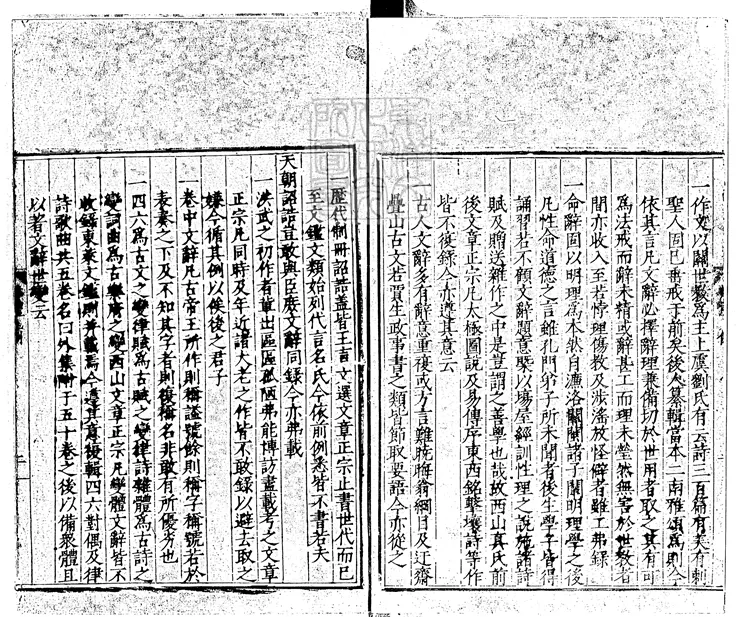 一作文以關世教爲主上虞劉氏有云詩三百篇有美有刺
聖人固已垂戒于前矣後人纂輯當本二南雅頌爲則今
依其言凡文辭必擇辭理兼備切於世用者取之其有可
爲法戒而辭未精或辭甚工而理未瑩然無害於世教者
間亦收入至若悖理傷教及涉淫放怪僻者雖工弗録
一命辭固以明理爲本然自濂洛關閩諸子闡明理學之後
凡性命道德之言雖孔門弟子所未聞者後生學子皆得
誦習若不顧文辭題意槩以塲屋經訓性理之說施諸詩
賦及贈送雜作之中是豈謂之善學也哉故西山真氏前
後文章正宗凡太極圖說及易傳序東西銘擊壤詩等作
皆不復録今亦遵其意云
古人文辭多有辭意重複或方言難晓晦翁綱目及迂齋
疊山古文若賈生政事書之類皆節取要語今亦從之
一歷代制冊詔誥蓋皆王言文選文章正宗止書世代而已
至文鑑文類始列代言名氏今依前例悉皆不書若夫
天朝詔誥豈敢與臣庶文辭同録今亦弗載
一洪武之初作者輩出區區孤陋弗能博訪盡載考之文章
正宗凡同時及年近諸大老之作皆不敢録以避去取之
嫌今循其例以俟後之君子
一卷中文辭凡古帝王所作則稱謚號餘則稱子稱號若於
表奏之下及不知其字者則復稱名非敢有所優劣也
一四六爲古文之變律賦爲古賦之變律詩雜體爲古詩之
變詞曲爲古樂府之變西山文章正宗凡變體文辭皆不
收録東萊文鑑則并載焉今遵其意復輯四六對偶及律
詩歌曲共五卷名曰外集附于五十卷之後以備衆體且
以著文辭世變云